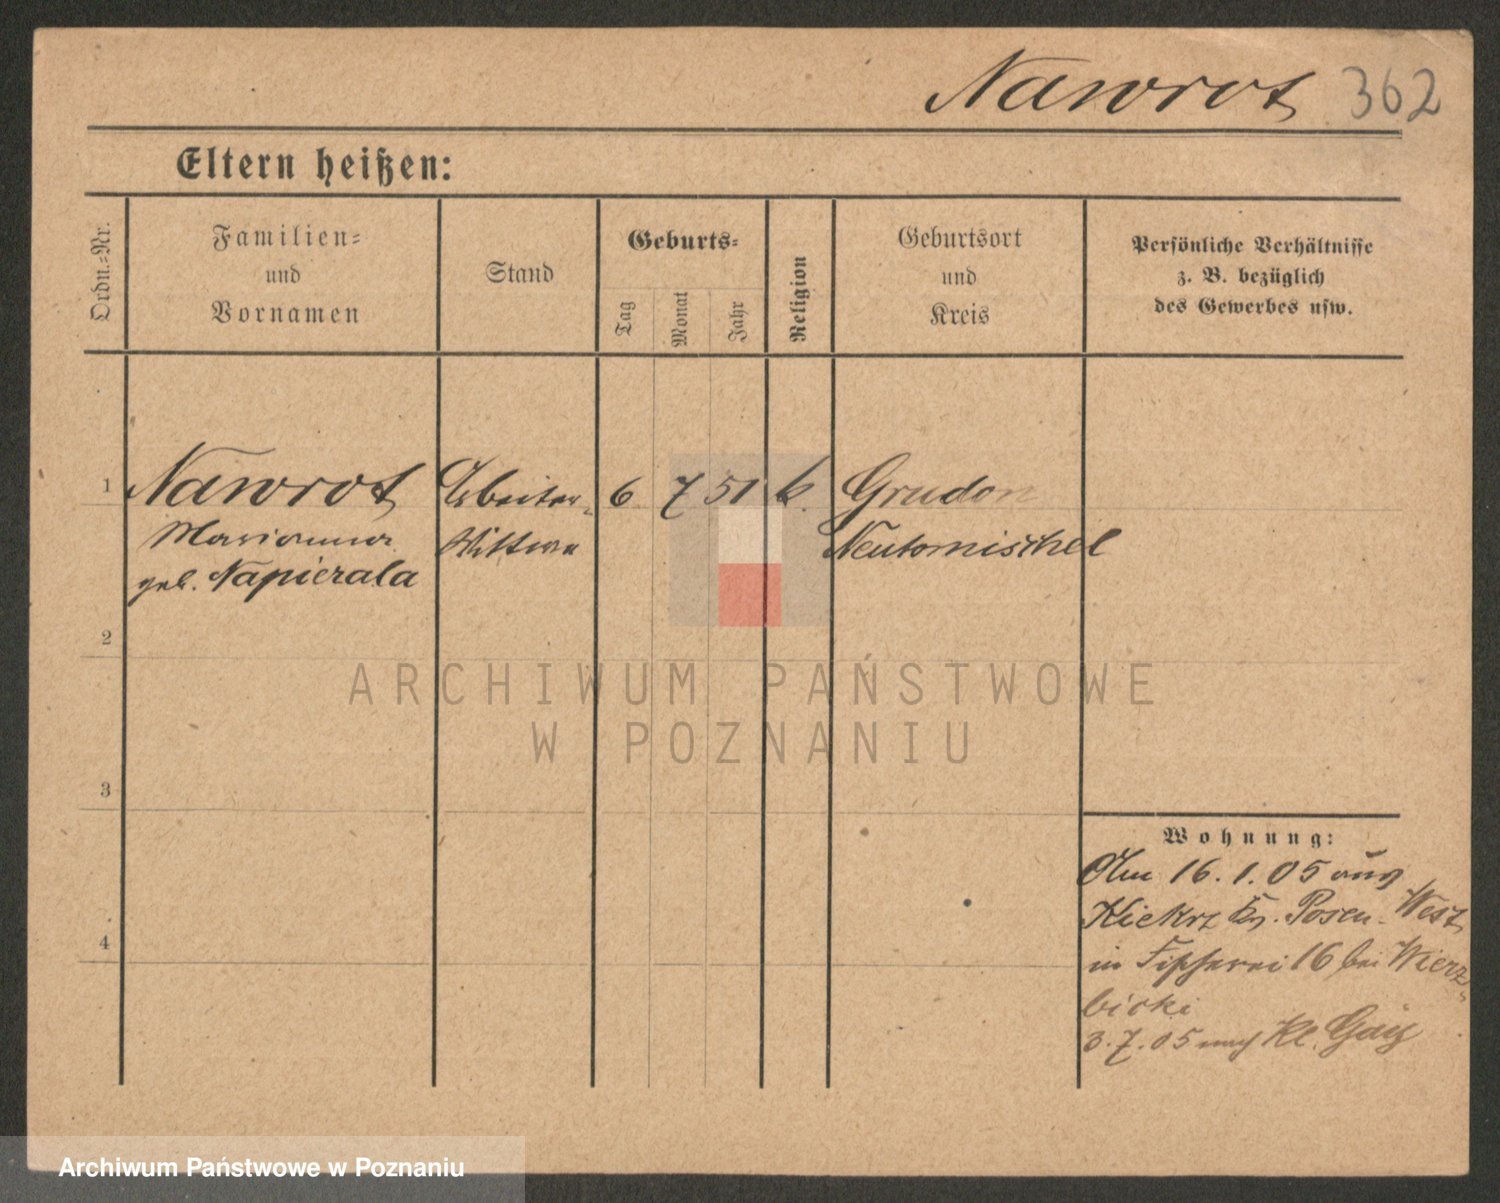 Nawrot 362
Eltern heißen:
Ordn.-Nr.
Familien-
und
Vornamen
Stand
Geburts-
Tag
Monat
Jahr
Religion
Geburtsort
und
Kreis
Persönliche Verhältnisse
z. B. bezüglich
des Gewerbes usw.
1 Nawrot Arbeiter- 6 7 51 k. Grudon
Marianna Wittwe Neutomischel
geb. Napierala
2
ARCHIWUM PAŃSTWOWE
W POZNANIU
3
Wohnung:
Am 16.1.05 aus
Kiekrz Kr. Posen-West
4
in Fischerei 16 bei Wierz-
bicki
3.7.05 nach Kl. Gay
Archiwum Państwowe w Poznaniu